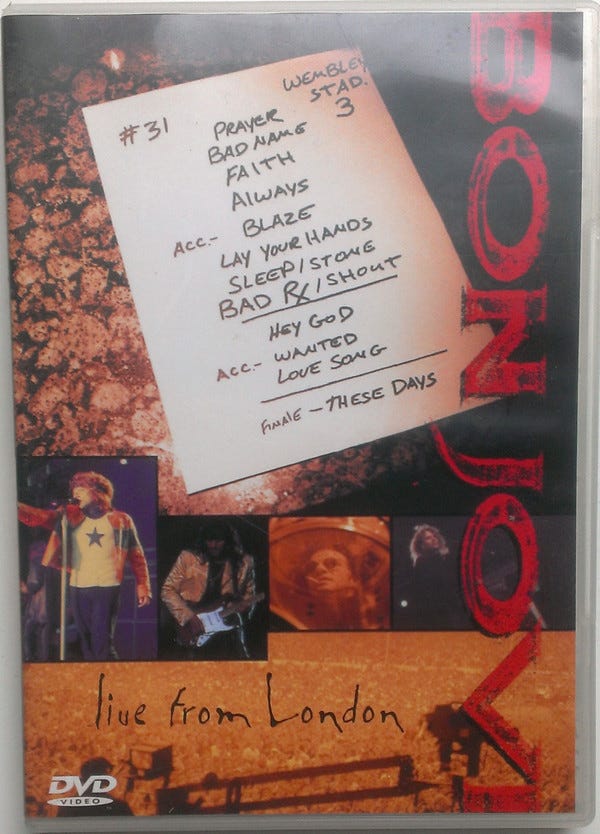 WEMBLEY
STAD.
3
#31
PRAYER
BAD NAME
FAITH
AlWAYS
ACC.- BLAZE
LAY YOUR HANDS
SLEEP/STONE
BAD Rx/SHOUT
HEY GOD
ACC.- WANTED
LOVE SONG
FINAlE - THESE DAYS
BON JOVI
live from London
DVD
VIDEO